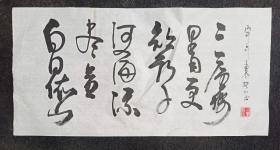 白日依山
尽黄
河入海流
欲穷千
里目更
上一层楼